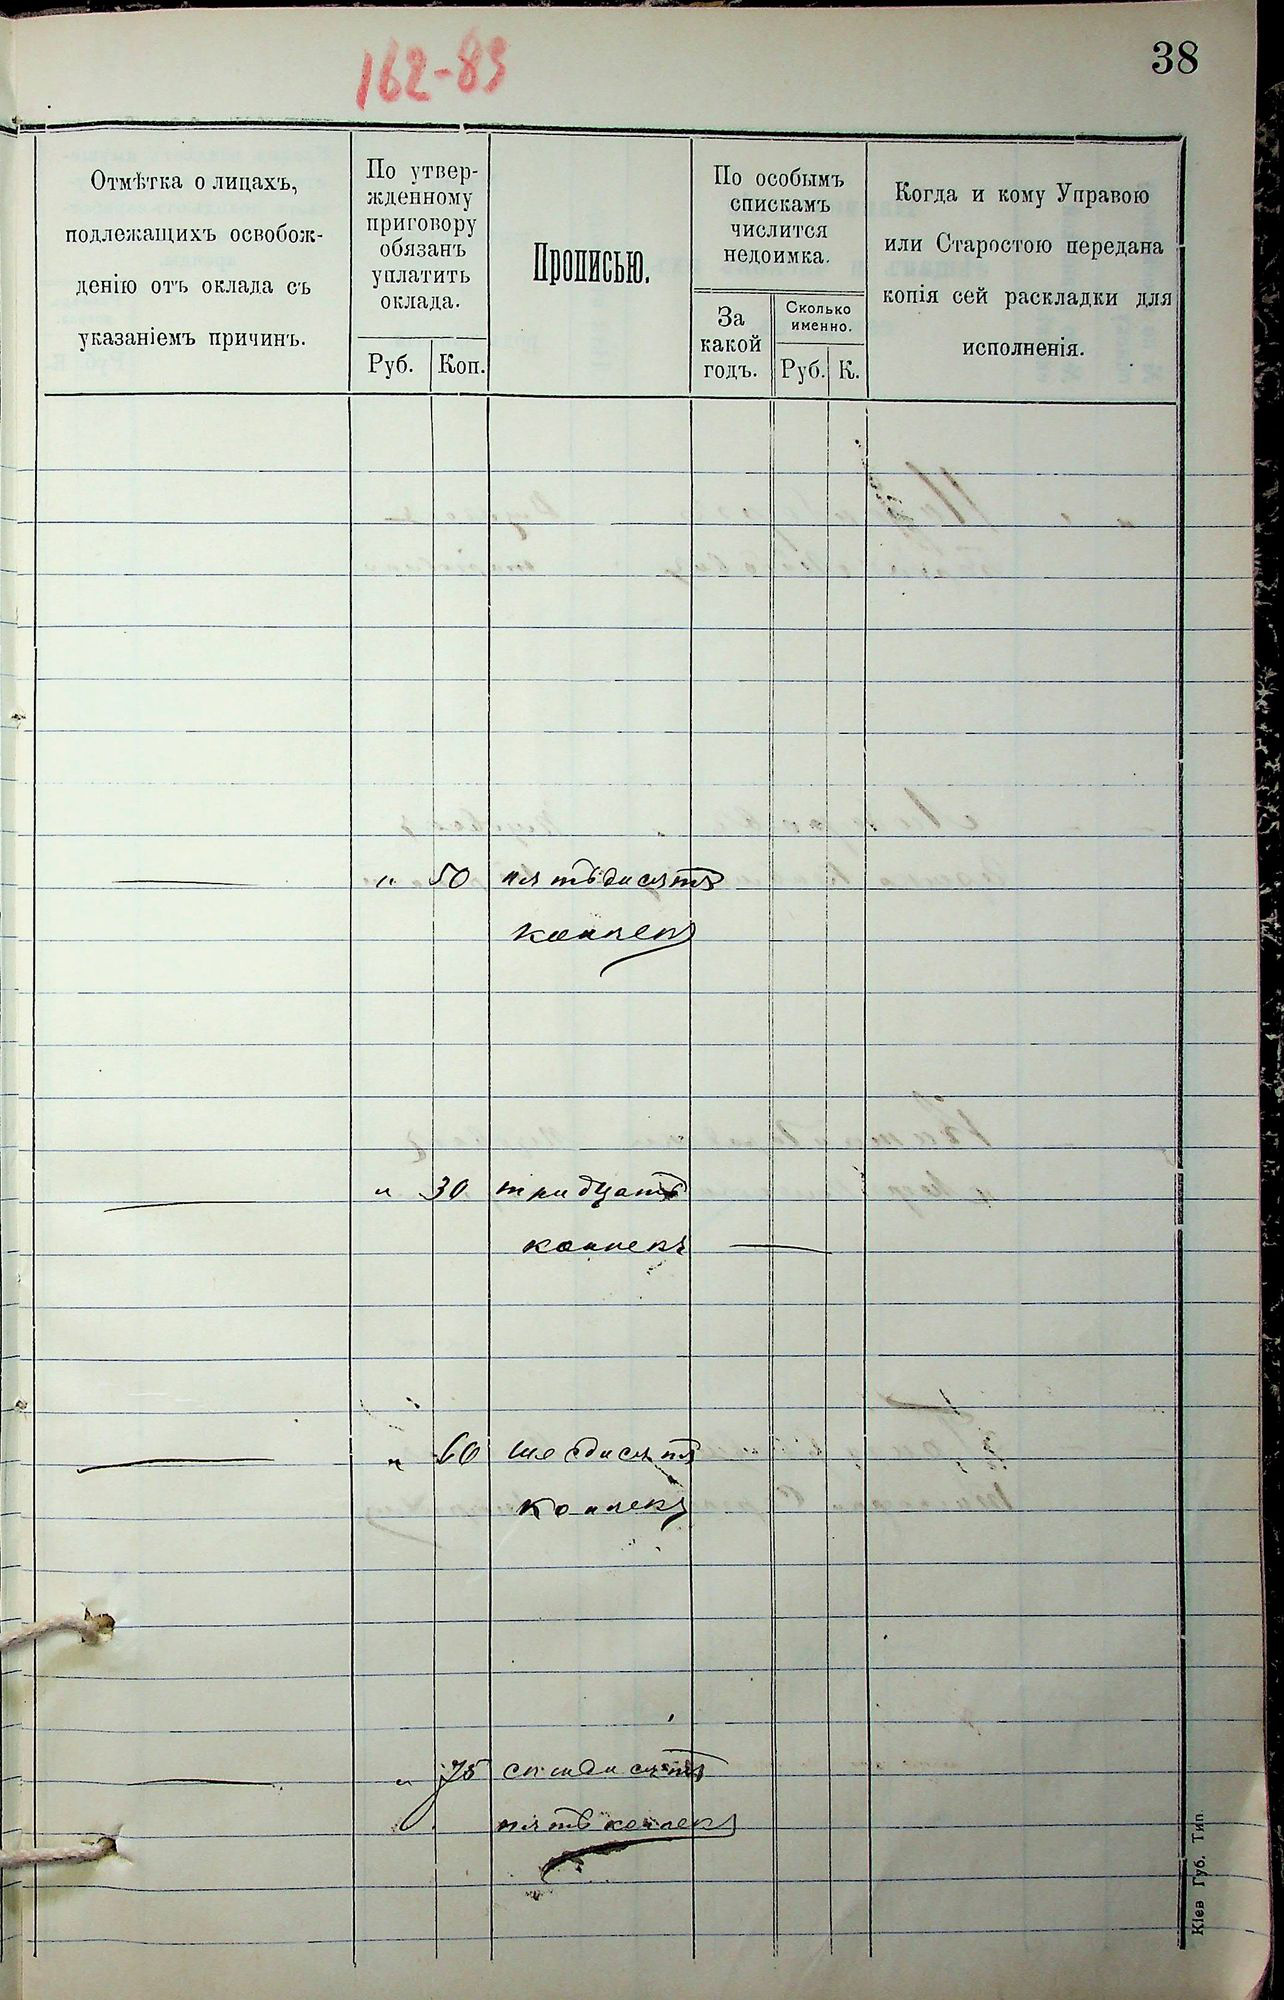 162-83
38
Отмѣтка о лицахъ,
подлежащихъ освобож-
денію отъ оклада съ
указаніемъ причинъ.
По утвер-
жденному
приговору
обязанъ
уплатить
оклада.
Руб.
Коп.
Прописью.
По особымъ
спискамъ
числится
недоимка.
За
какой
годъ.
Сколько
именно.
Руб.
К.
Когда и кому Управою
или Старостою передана
копія сей раскладки для
исполненія.
" 50 пятьдесятъ
копѣекъ
" 30 тридцать
копѣекъ
" 60 шесдисятъ
копѣекъ
" 75 симдисятъ
пять копѣекъ
Кіев Губ. Тип